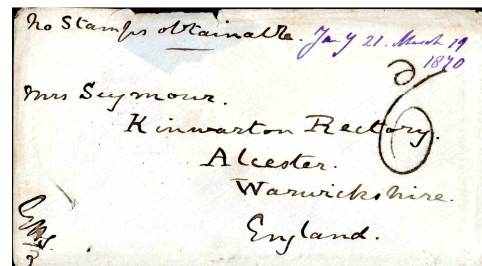 No Stamps obtainable. Jany 21. March 19
1870
Mrs Seymour.
Kinwarton Rectory.
Alcester.
Warwickshire.
England.
6